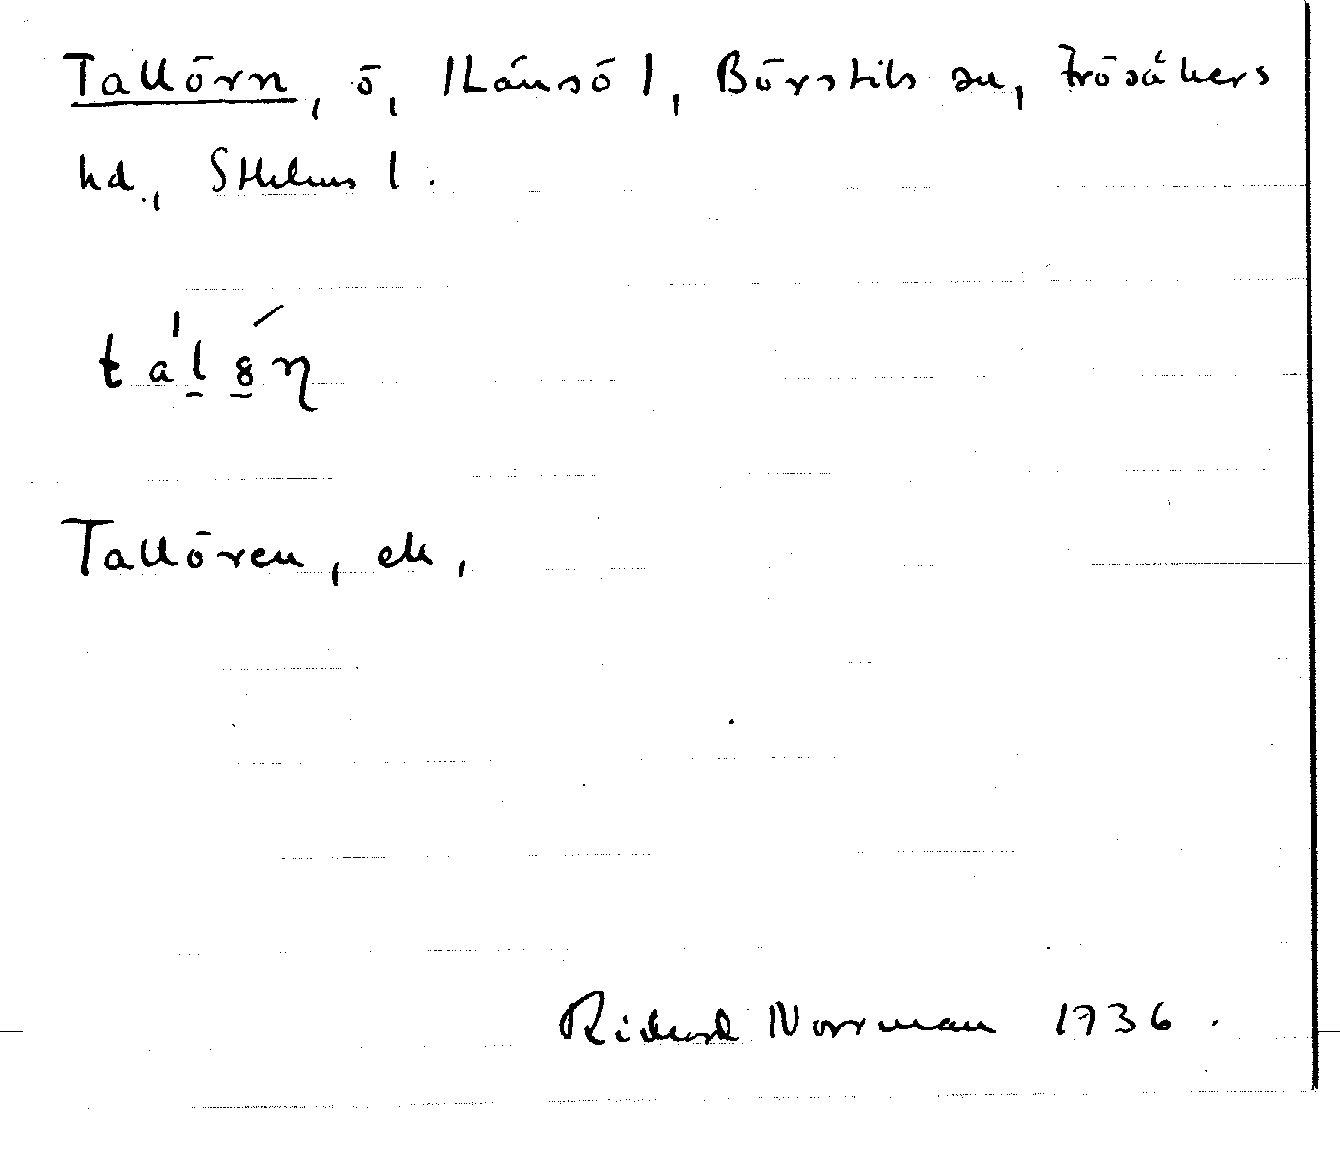 Tallörn, ö, (Länsö), Börstils sn, Frösåkers
hd., Sthlms l.
tálön
Tallören, ek,
Rickard Norrman 1936.